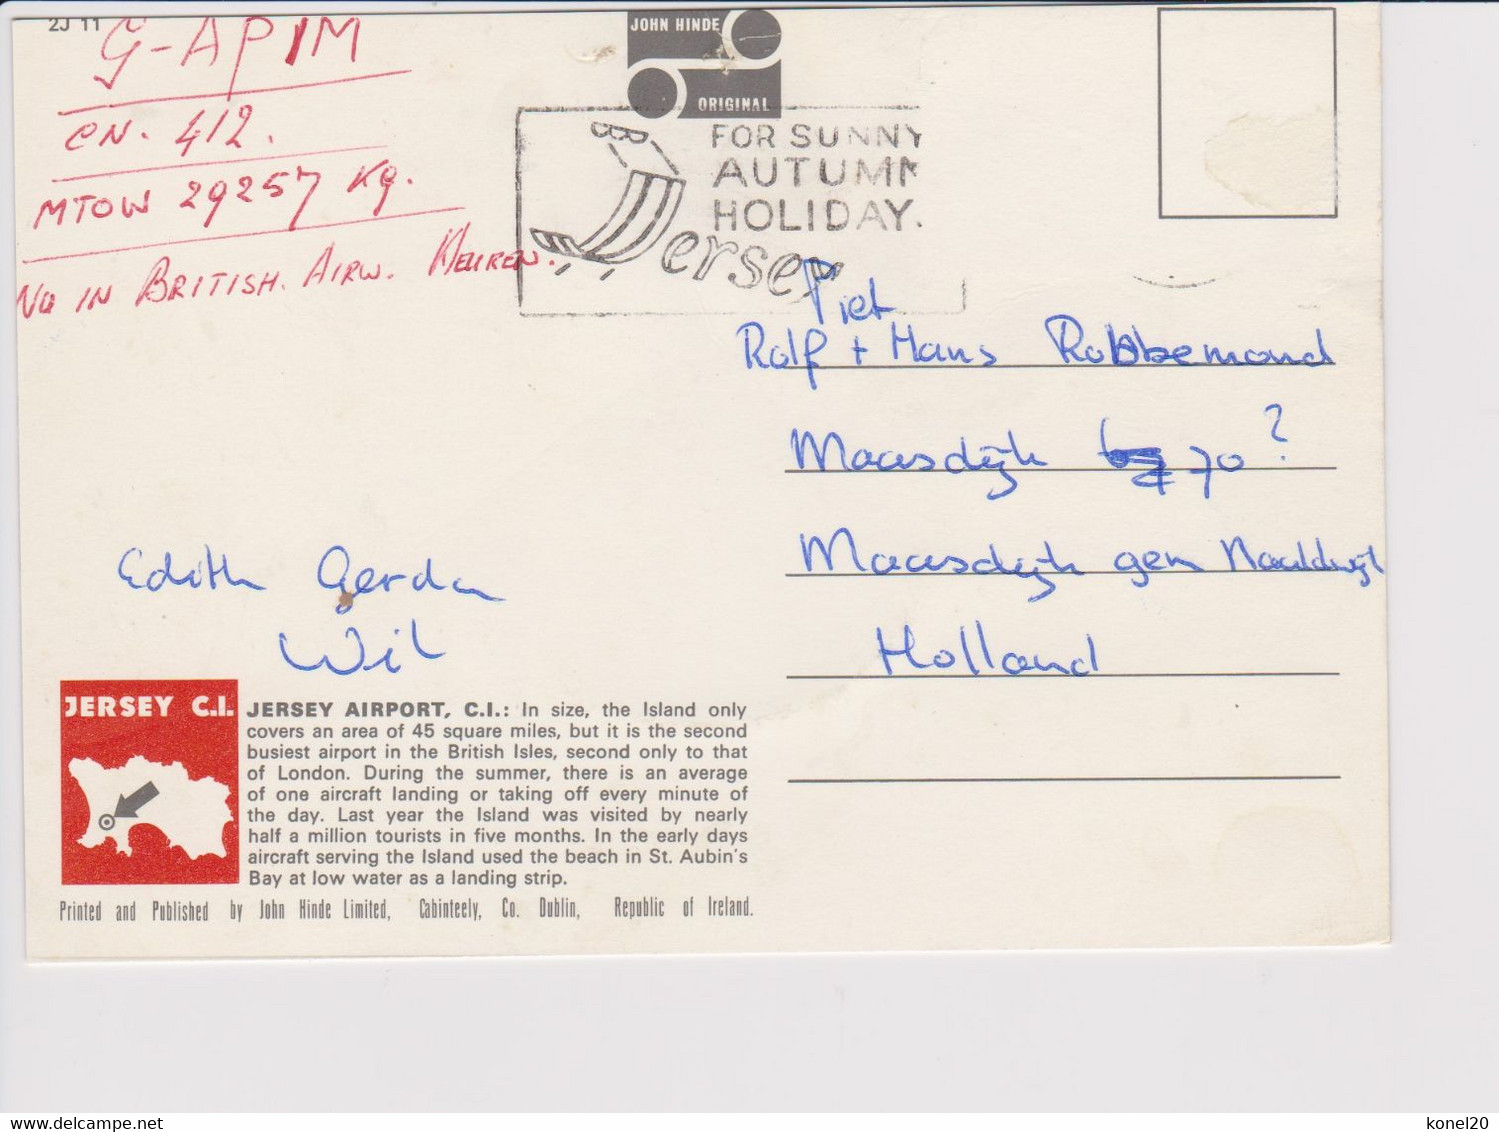 2J 11
G-APIM
CN. 412.
MTOW 29257 Kg.
NU IN BRITISH. AIRW. KLEUREN.
JOHN HINDE
ORIGINAL
FOR SUNNY
AUTUMN
HOLIDAY.
Jersey
Piet
Rolf + Hans Robbemond
Maasdijk 70 ?
Maasdijk gem Naaldwijk
Holland
Edith Gerda
Wil
JERSEY C.I.
JERSEY AIRPORT, C.I.: In size, the Island only
covers an area of 45 square miles, but it is the second
busiest airport in the British Isles, second only to that
of London. During the summer, there is an average
of one aircraft landing or taking off every minute of
the day. Last year the Island was visited by nearly
half a million tourists in five months. In the early days
aircraft serving the Island used the beach in St. Aubin's
Bay at low water as a landing strip.
Printed and Published by John Hinde Limited, Cabinteely, Co. Dublin, Republic of Ireland.
konel20